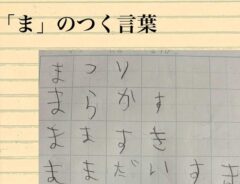 「ま」のつく言葉
まつり
まらかす
まますき
ままだいすき